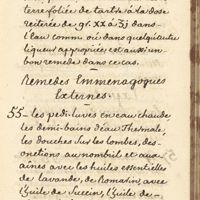 terre foliée de tartre à la dose
reiterée de gr. XX à 3j dans
l'Eau comm. ou dans quelqu'autre
liqueur appropriée, est aussi un
bon remede dans ce cas.
Remedes Emmenagogues
Externes.
55 - les pedi-luves en eau chaude
les demi-bains d'eau Thermale,
les douches sur les lombes, des
onctions au nombril et aux
aînes avec les huiles essentielles
de lavande, de Romarin, avec
l'huile de Succin, l'huile de